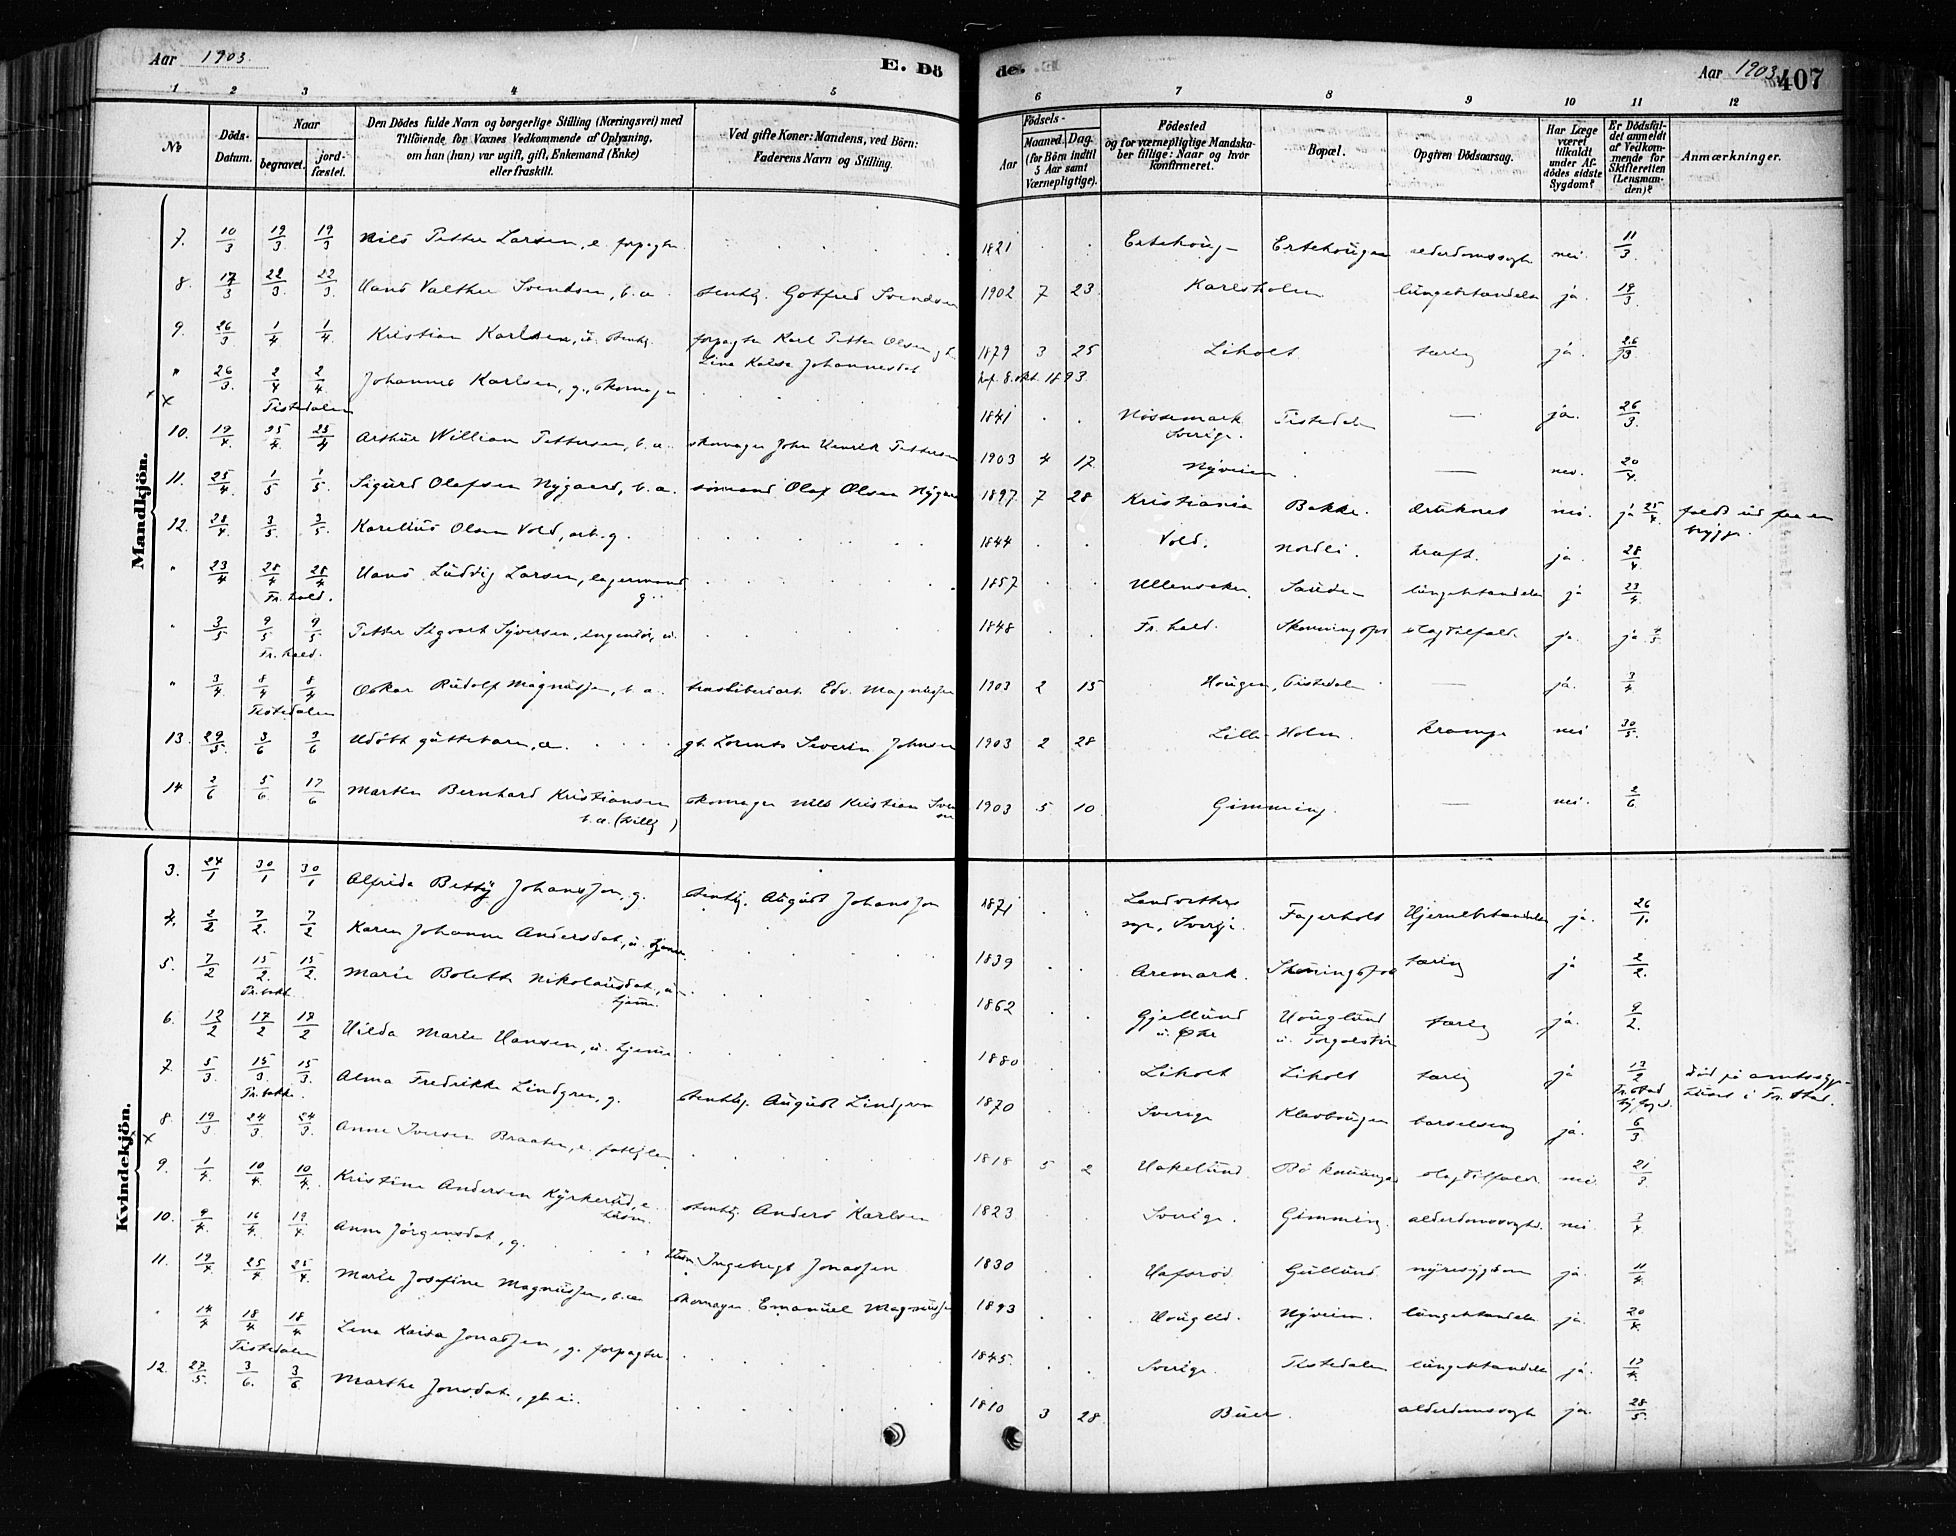 Aar 1903.
E. Dö
de.
Aar 1903.
407
1 2 3 4 5 6 7 8 9 10 11 12
No
Döds-Datum.
Naar
begravet.
jord-fæstet.
Den Dödes fulde Navn og borgerlige Stilling (Næringsvei) med Tilföiende for Voxnes Vedkommende af Oplysning, om han (hun) var ugift, gift, Enkemand (Enke) eller fraskilt.
Ved gifte Koner: Mandens, ved Börn: Faderens Navn og Stilling.
Födsels-
Aar
Maaned. Dag
(for Börn indtil 5 Aar samt Værnepligtige).
Födested og for værnepligtige Mandskaber tillige: Naar og hvor konfirmeret.
Bopæl.
Opgiven Dödsaarsag.
Har Læge været tilkaldt under Afdödes sidste Sygdom?
Er Dödsfaldet anmeldt af Vedkommende for Skifteretten (Lensmanden)?
Anmærkninger.
Mandkjön.
7. 10/3 19/3 19/3 Nils Petter Larsen, e. forpagter 1821 Ertehoug Ertehougen alderdomssvagh. nei. 11/3
8. 17/3 22/3 22/3 Hans Valther Svendsen, b.a. stenhg. Gotfred Svendsen 1902 7 23. Karlsholm lungebetændelse ja. 19/3
9. 26/3 1/4 1/4 Kristian Karlsen, u. stenhg. forpagter Karl Petter Olsen og h. Lina Kaisa Johannesdat 1879 3 25 Liholt tæring ja. 26/3
kof. 8. okt. 1893.
" 26/3. 2/4 2/4 Johannes Karlsen, g., skomager 1841 Nössemark Sverige. Tistedalen — ja. 26/3
× Tistedalen
10. 19/4 25/4 25/4 Arthur William Pettersen, b.a. skomager John Henrik Pettersen 1903 4 17 Nyveien — nei. 20/4
11. 25/4 1/5 1/5 Sigurd Olafsen Nygaard, b.a. sömand Olaf Olsen Nygaard 1897 7 28 Kristiania Bakke. druknet nei. ja 25/4. faldt ud fra en brygge.
12. 28/4 3/5 3/5 Karelius Olsen Vold, arb. g. 1844 Vold. Nordli. kræft. ja. 28/4
" 23/4 28/4 28/4 Hans Ludvig Larsen, lagermand g. 1857 Ullensaker Sauöen lungebetændelse ja 23/4
Fr.hald.
" 3/5 9/5 9/5 Petter Sigvart Syversen, ingeniör, u. 1848 Fr.hald. Skonningsfos slagtilfælde ja ja
Fr.hald.
" 3/4 8/4 8/4 Oskar Rudolf Magnussen, b.a. træsliberiarb. Edv. Magnussen 1903 2 15 Hougen, Tistedalen — ja. 3/4
Tistedalen
13. 29/5 3/6 3/6 Udöbt guttebarn, æ. gt. Lorents Severin Johnsen 1903 2 28 Lille-Holm. krampe nei 30/5.
14 2/6 5/6 17/6 Marten Bernhard Kristiansen b.a. (tvilling) skomager Nils Kristian Svensen 1903 5 10 Gimming. — nei. 2/6
Kvindekjön.
3. 24/1 30/1 30/1 Alfrida Betty Johansson, g. stenhg. August Johansson 1871 Landvetters sogn, Sverige. Fagerholt Hjernebetændelse ja. 26/1.
4. 2/2 7/2. 7/2 Karen Johanne Andersdat, u. tjener. 1839 Aremark. Skonningsfos tæring ja 2/2
5. 7/2 15/2. 15/2. Marie Boletth Nikolausdat, u. tjener. 1862 Gjellund u. Öste Houglund u. Torgalstön tæring ja. 9/2.
Fr.bakk.
6. 12/2 17/2 17/2 Hilda Marie Hansen, u. tjener 1880 Liholt Liholt tæring ja 13/2 död på amtssygehuset i Fr.stad.
7 5/3. 15/3 15/3. Alma Fredrikke Lindgren, g. stenhg. August Lindgren 1870 Sverige Klevhougen barselseng ja. 6/3
Fr.bakke.
8. 19/3 24/3. 24/3. Anne Iversen Braaten, e. fattiglem 1818 5 2 Hakelund. slagtilfælde nei. 21/3
×
9. 1/4 10/4. 10/4. Kristine Andersen Kyrkerud, e. stenhg. Anders Karlsen 1823 Sverige. Gimming. alderdomssvagh. nei 3/4
10. 9/4. 16/4. 19/4. Anne Jörgensdat, g. Ingebregt Jonassen 1830 Hafsröd Gullund nyresygdom ja. 11/4
11. 19/4 25/4 25/4. Marie Josefine Magnussen, b.æ. skomager Emanuel Magnussen 1893 Nyveien. lungebetændelse ja. 20/4
" 14/4 18/4 18/4 Lena Kaisa Jonassen, g. forpagter 1845. Sverige Tistedalen lungebetændelse ja.
Tistedalen
12. 27/5. 3/6. 3/6 Marthe Jonsdat, 1810 3 28. Buer. alderdomssvagh ja. 28/5.